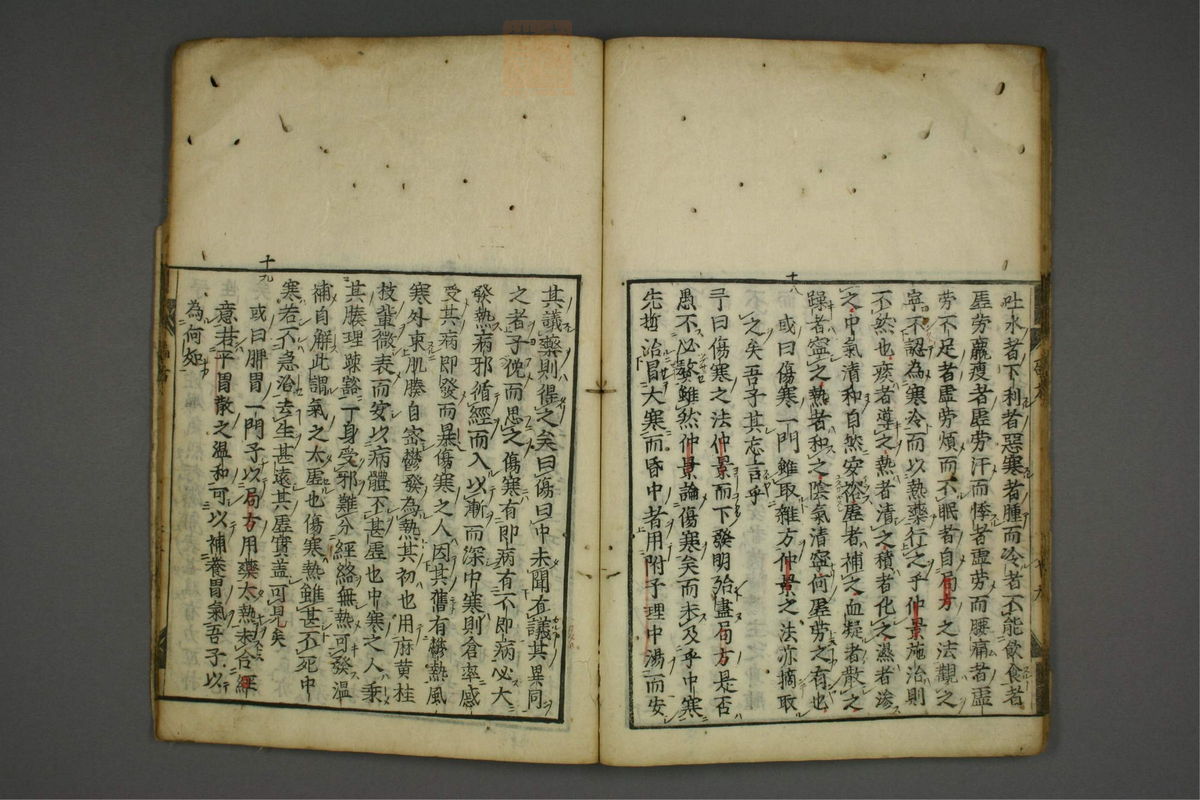 吐水者下利者惡寒者腫而冷者不能飲食者
虛勞羸瘦者虛勞汗而悸者虛勞而腰痛者虛
勞不足者虛勞煩而不眠者自局方之法觀之
寧不認為寒冷而以熱藥行之乎仲景施治則
不然也痰者導之熱者清之積者化之濕者滲
之中氣清和自然安裕虛者補之血凝者散之
躁者寧之熱者和之陰氣清寧何虛勞之有也
十八
或曰傷寒一門雖取雜方仲景之法亦摘取
之矣吾子其忘言乎
予曰傷寒之法仲景而下發明殆盡局方是否
愚不必贅雖然仲景論傷寒矣而未及乎中寒
先哲治冒大寒而昏中者用附子理中湯而安
其議藥則得之矣曰傷曰中未聞有議其異同
之者予俛而思之傷寒有即病有不即病必大
發熱病邪循經而入以漸而深中寒則倉率感
受其病即發而暴傷寒之人因其舊有鬱熱風
寒外束肌腠自密鬱發為熱其初也用麻黃桂
枝輩微表而安以病體不甚虛也中寒之人乘
其腠理疎豁一身受邪難分經絡無熱可發溫
補自解此謂氣之大虛也傷寒熱雖甚不死中
寒若不急治去生甚遠其虛實盖可見矣
十九
或曰脾胃一門子以局方用藥太熱未合經
意若平胃散之溫和可以補養胃氣吾子以
為何如